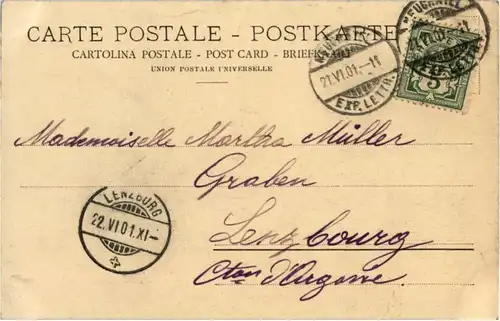 CARTE POSTALE - POSTKARTE
CARTOLINA POSTALE - POST CARD - BRIEFKAART
UNION POSTALE UNIVERSELLE
21.VI.01.-11
EXP. LETTR.
EXP. LETTR.
5
Mademoiselle Martha Müller
Graben
Lenzbourg
Cton d'Argovie
LENZBURG
22.VI.01.XI-